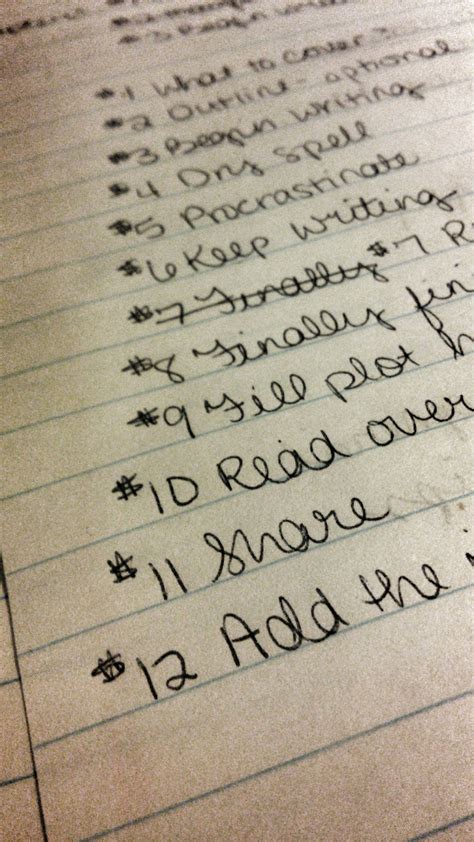 #3 Begin
#1 What to cover?
#2 Outline - optional
#3 Begin writing
#4 Dry spell
#5 Procrastinate
#6 Keep Writing
#7 Finally #7 R
#8 Finally fin
#9 Fill plot h
#10 Read over
#11 Share
#12 Add the